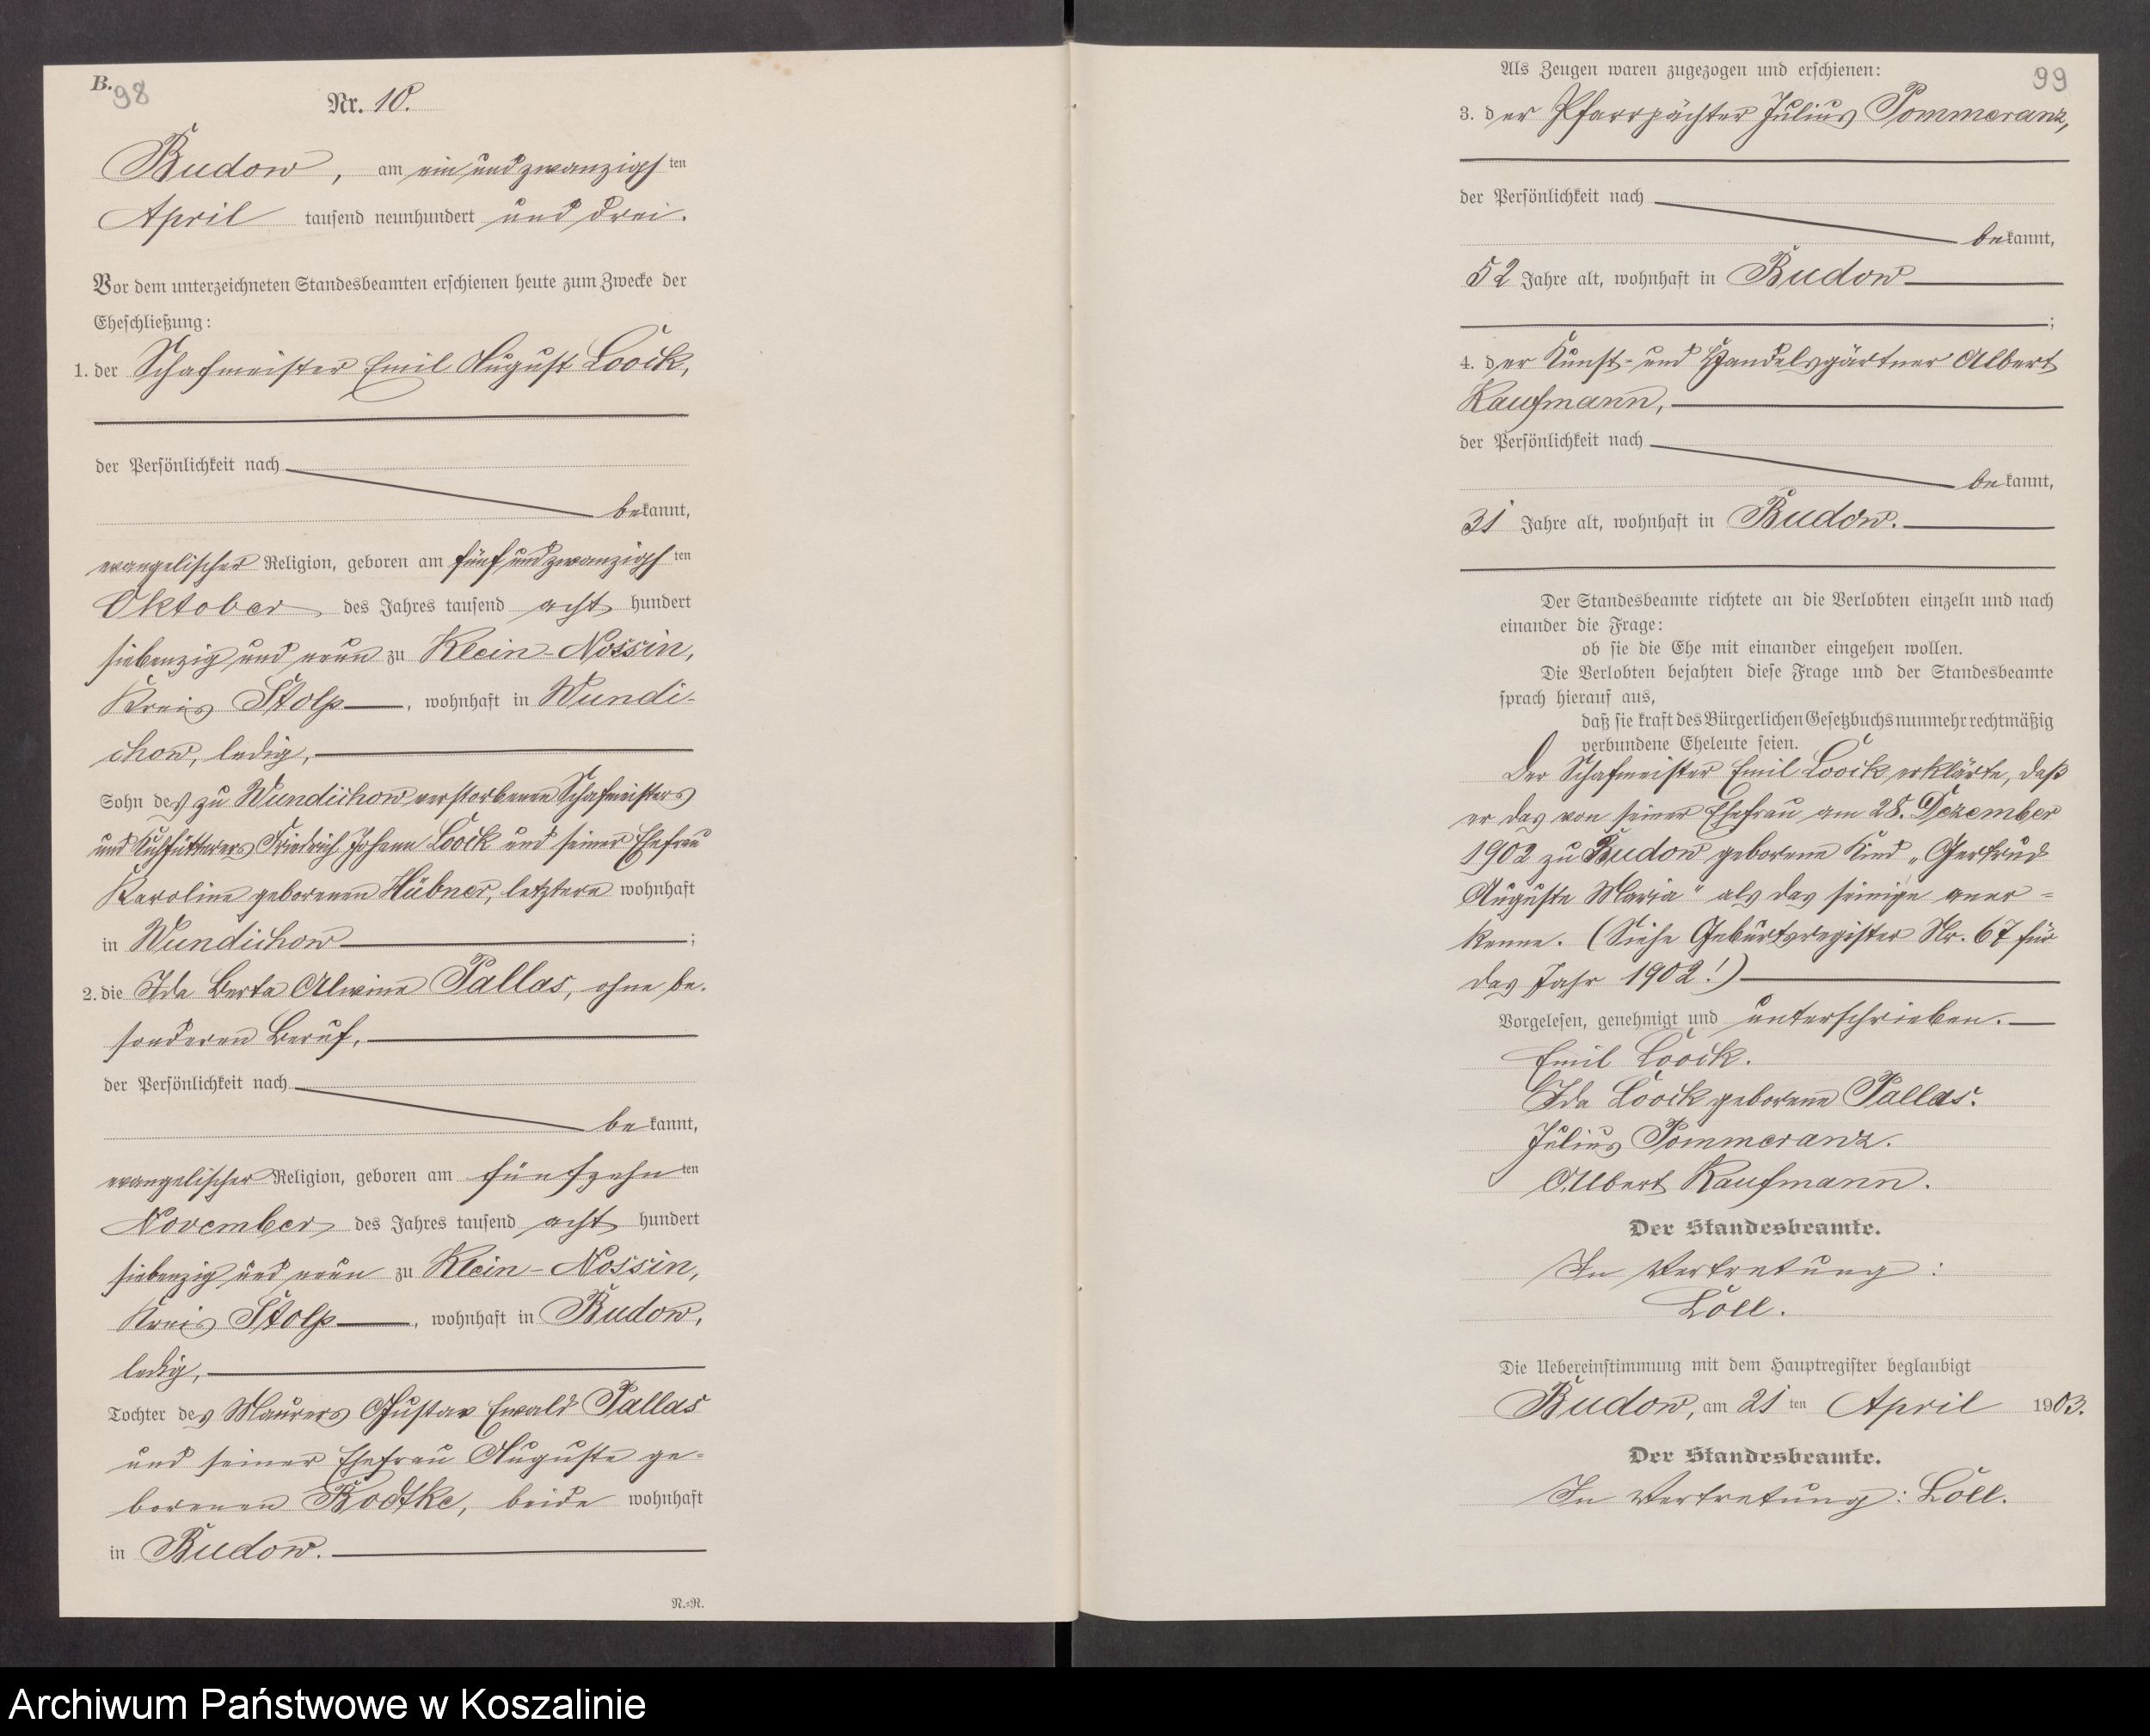 B.
98
Nr. 10.
Budow, am ein und zwanzigsten
April tausend neunhundert und drei.
Vor dem unterzeichneten Standesbeamten erschienen heute zum Zwecke der
Eheschließung:
1. der Schafmeister Emil August Loock,
der Persönlichkeit nach
bekannt,
evangelischer Religion, geboren am fünf und zwanzigsten
Oktober des Jahres tausend acht hundert
siebenzig und neun zu Klein-Nossin,
Kreis Stolp, wohnhaft in Wundi-
chow, ledig,
Sohn des zu Wundichow verstorbenen Schafmeisters
und Kuhfütterers Friedrich Johann Loock und seiner Ehefrau
Karoline geborenen Hübner, letztere wohnhaft
in Wundichow;
2. die Ida Berta Alwine Pallas, ohne be-
sonderen Beruf,
der Persönlichkeit nach
bekannt,
evangelischer Religion, geboren am fünfzehnten
November des Jahres tausend acht hundert
siebenzig und neun zu Klein-Nossin,
Kreis Stolp, wohnhaft in Budow,
ledig,
Tochter des Maurers Gustav Ewald Pallas
und seiner Ehefrau Auguste ge-
borenen Radtke, beide wohnhaft
in Budow.
N.=N.
99
Als Zeugen waren zugezogen und erschienen:
3. der Pfarrpächter Julius Pommeranz,
der Persönlichkeit nach
bekannt,
52 Jahre alt, wohnhaft in Budow
;
4. der Kunst- und Handelsgärtner Albert
Kaufmann,
der Persönlichkeit nach
bekannt,
31 Jahre alt, wohnhaft in Budow.
Der Standesbeamte richtete an die Verlobten einzeln und nach
einander die Frage:
ob sie die Ehe mit einander eingehen wollen.
Die Verlobten bejahten diese Frage und der Standesbeamte
sprach hierauf aus,
daß sie kraft des Bürgerlichen Gesetzbuchs nunmehr rechtmäßig
verbundene Eheleute seien.
Der Schafmeister Emil Loock erklärte, daß
er das von seiner Ehefrau am 28. Dezember
1902 zu Budow geborene Kind „Gertrud
Auguste Maria" als das seinige aner-
kenne. (Siehe Geburtsregister Nr. 67 für
das Jahr 1902!)
Vorgelesen, genehmigt und unterschrieben.
Emil Loock.
Ida Loock geborene Pallas.
Julius Pommeranz.
Albert Kaufmann.
Der Standesbeamte.
In Vertretung:
Löll.
Die Uebereinstimmung mit dem Hauptregister beglaubigt
Budow, am 21 ten April 1903.
Der Standesbeamte.
In Vertretung: Löll.
Archiwum Państwowe w Koszalinie